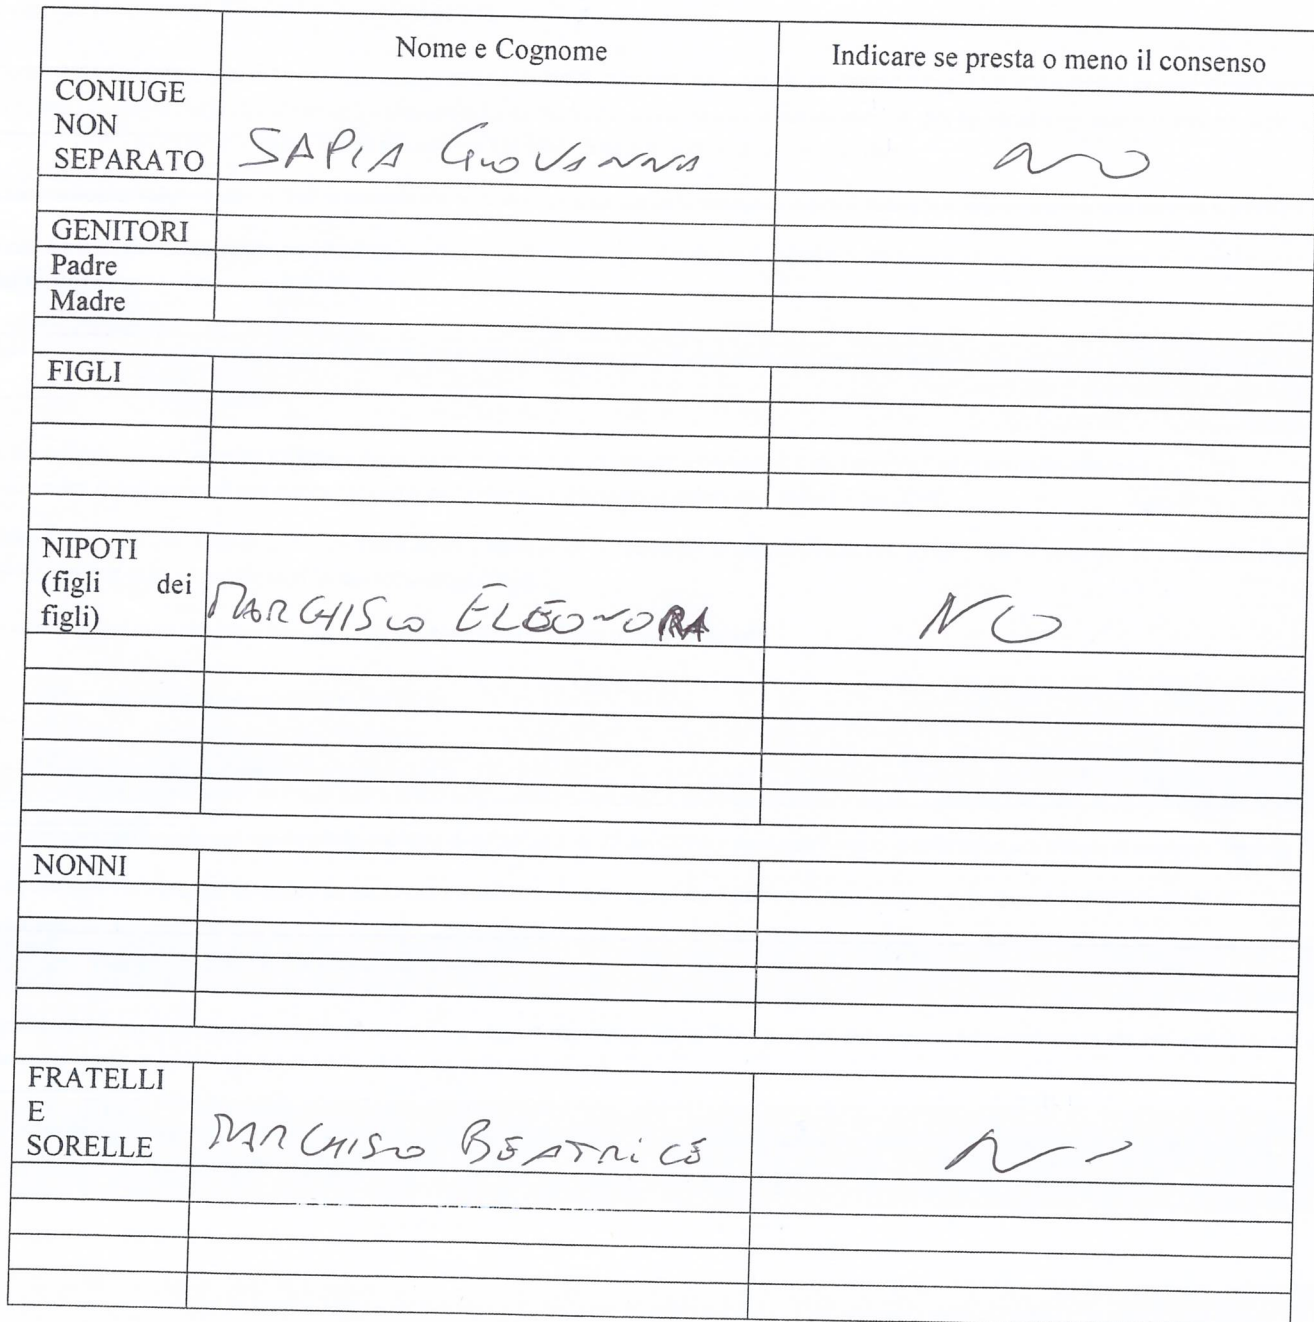 Nome e Cognome Indicare se presta o meno il consenso
CONIUGE
NON
SEPARATO SAPIA GIOVANNA NO
GENITORI
Padre
Madre
FIGLI
NIPOTI
(figli dei
figli) MARCHISIO ELEONORA NO
NONNI
FRATELLI
E
SORELLE MARCHISIO BEATRICE NO